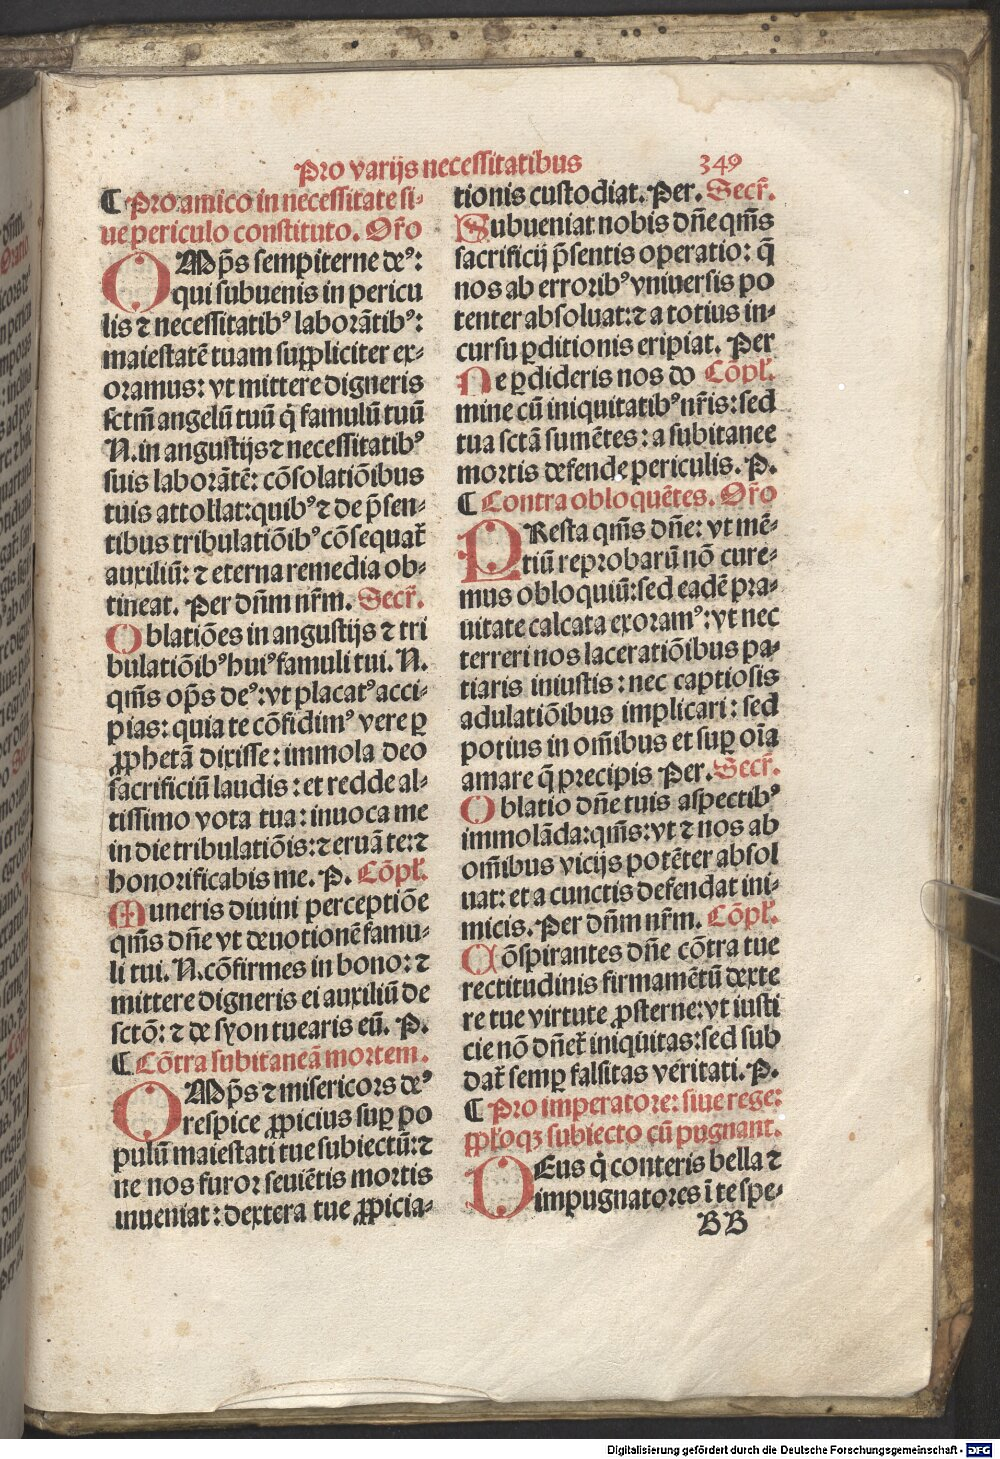 Pro varijs necessitatibus 349
¶ Pro amico in necessitate si-
ue periculo constituto. Or̃o
OMp̃s sempiterne deꝰ:
qui subuenis in pericu
lis ⁊ necessitatibꝰ laborãtibꝰ:
maiestatẽ tuam suppliciter ex-
oramus: vt mittere digneris
sctm̃ angelũ tuũ q̃ famulũ tuũ
N. in angustijs ⁊ necessitatibꝰ
suis laborãtẽ: cõsolatiõibus
tuis attollat: quibꝰ ⁊ de p̃sen-
tibus tribulatiõibꝰ cõsequat̃
auxiliũ: ⁊ eterna remedia ob-
tineat. Per dñm nr̃m. Secr̃.
Oblatiões in angustijs ⁊ tri
bulatiõibꝰ huiꝰ famuli tui. N.
qm̃s op̃s deꝰ: vt placatꝰ acci-
pias: quia te cõfidimꝰ vere ꝑ
ꝓphetã dixisse: immola deo
sacrificiũ laudis: et redde al-
tissimo vota tua: inuoca me
in die tribulatiõis: ⁊ eruã te: ⁊
honorificabis me. P. Cõpl̃.
Muneris diuini perceptiõe
qm̃s dñe vt deuotionẽ famu-
li tui. N. cõfirmes in bono: ⁊
mittere digneris ei auxiliũ de
sctõ: ⁊ de syon tuearis eũ. P.
¶ Cõtra subitaneã mortem.
OMp̃s ⁊ misericors deꝰ
respice ꝓpicius suꝑ po
pulũ maiestati tue subiectũ: ⁊
ne nos furor seuiẽtis mortis
inueniat: dextera tue ꝓpicia-
tionis custodiat. Per. Secr̃.
Subueniat nobis dñe qm̃s
sacrificij p̃sentis operatio: q̃
nos ab erroribꝰ vniuersis po
tenter absoluat: ⁊ a totius in-
cursu ꝑditionis eripiat. Per
Ne ꝑdideris nos do Cõpl̃.
mine cũ iniquitatibꝰ nr̃is: sed
tua sctã sumẽtes: a subitanee
mortis defende periculis. P.
¶ Contra obloquẽtes. Or̃o
PResta qm̃s dñe: vt mẽ-
tiũ reprobarũ nõ cure-
mus obloquiũ: sed eadẽ pra-
uitate calcata exoramꝰ: vt nec
terreri nos laceratiõibus pa-
tiaris iniustis: nec captiosis
adulatiõibus implicari: sed
potius in om̃ibus et suꝑ oĩa
amare q̃ precipis Per. Secr̃.
Oblatio dñe tuis aspectibꝰ
immolãda: qm̃s: vt ⁊ nos ab
om̃ibus vicijs potẽter absol
uat: et a cunctis defendat ini-
micis. Per dñm nr̃m. Cõpl̃.
Cõspirantes dñe cõtra tue
rectitudinis firmamẽtũ dexte
re tue virtute ꝓsterne: vt iusti
cie nõ dñet̃ iniquitas: sed sub
dat̃ semꝑ falsitas veritati. P.
¶ Pro imperatore: siue rege:
ꝓpl̃oqꝫ subiecto cũ pugnant.
DEus q̃ conteris bella ⁊
impugnatores ĩ te spe-
BB
Digitalisierung gefördert durch die Deutsche Forschungsgemeinschaft - DFG